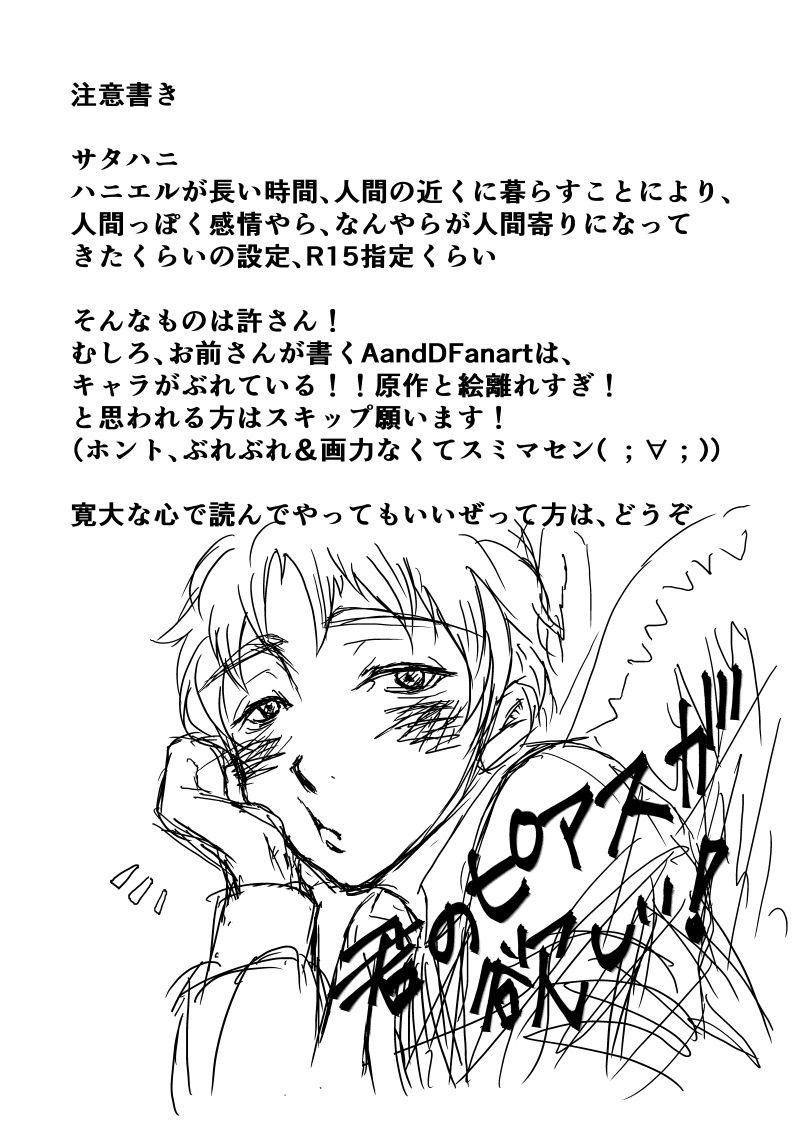 注意書き
サタハニ
ハニエルが長い時間、人間の近くに暮らすことにより、
人間っぽく感情やら、なんやらが人間寄りになって
きたくらいの設定、R15指定くらい
そんなものは許さん！
むしろ、お前さんが書くAandDFanartは、
キャラがぶれている！！原作と絵離れすぎ！
と思われる方はスキップ願います！
（ホント、ぶれぶれ＆画力なくてスミマセン( ；∀；)）
寛大な心で読んでやってもいいぜって方は、どうぞ
君のピアスが
欲しい！